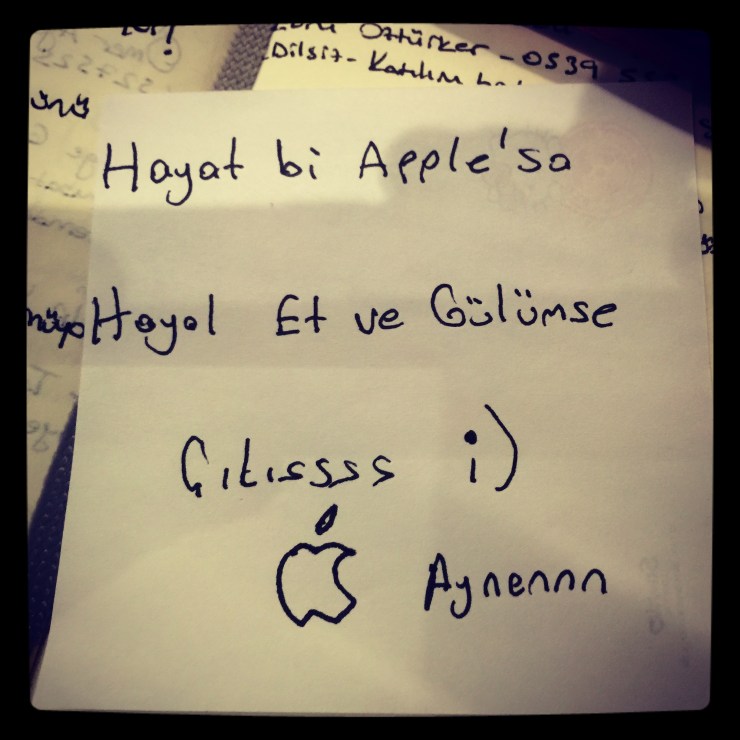 Öztürker - 0539
Dilsiz - Katılım
ünü
Hayat bi Apple'sa
Hayal Et ve Gülümse
Çıtıssss ;)
Aynennn